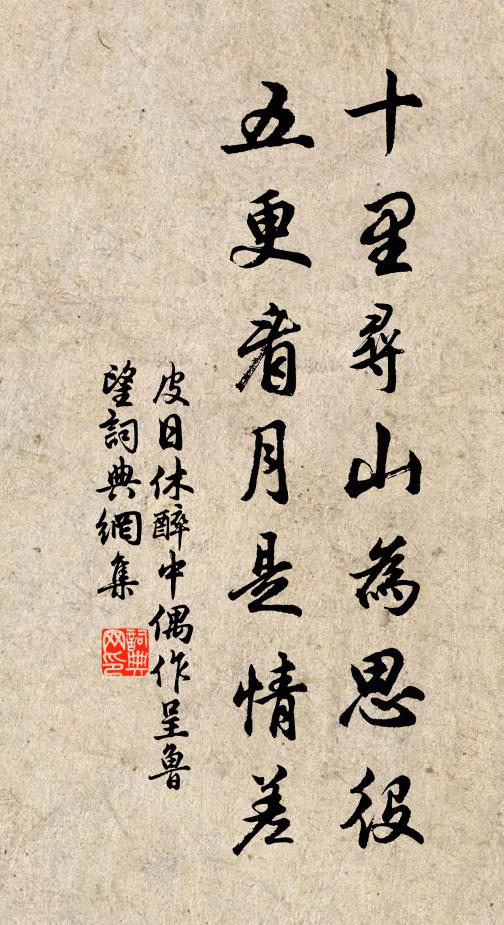 十里尋山為思役
五更看月是情差
皮日休醉中偶作呈魯
望詞典網集
詞典
网印